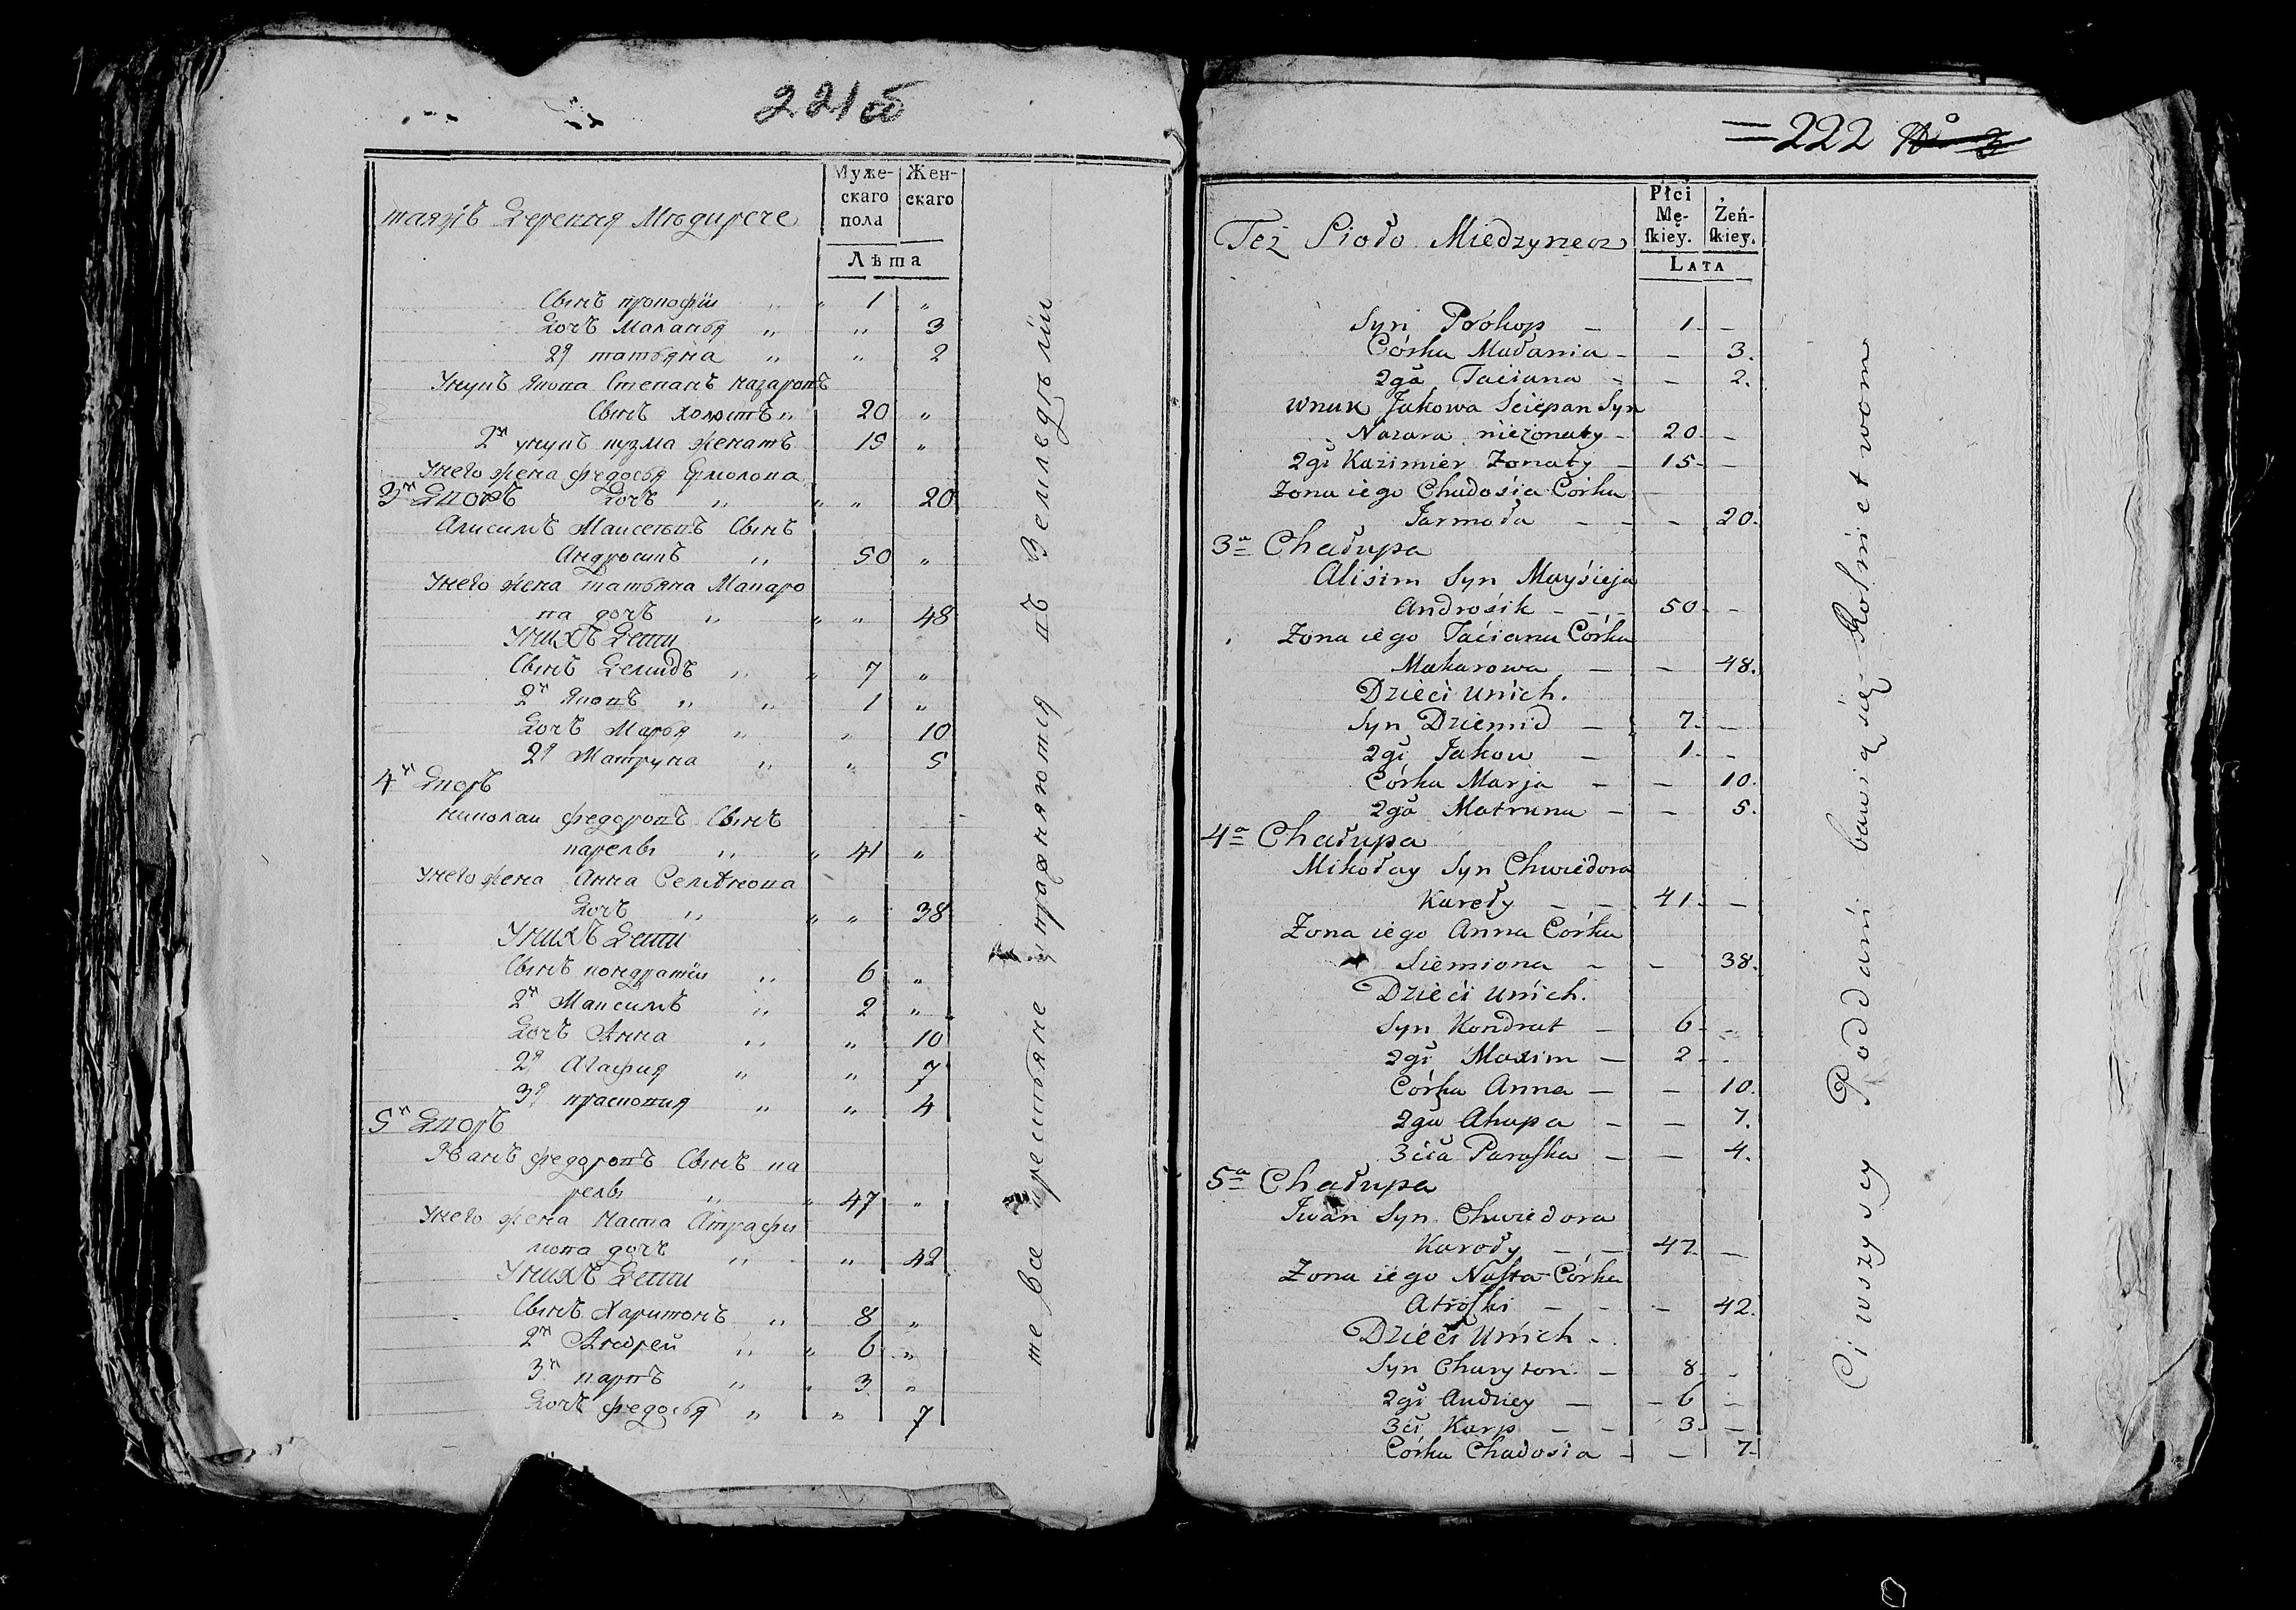 221 об
таяжъ Деревня Мѣдиречe
Муже-
скаго
пола
Жен-
скаго
Лѣта
Сынъ прокофiи " " 1 "
Дочь Маланья " " 3
2я татьяна " " 2
Унукъ якова Степанъ назаровъ
Сынъ холостъ " 20 "
2й унукъ кузма женатъ 15 "
Унего жена федосья Ермолова
Дочь " " " 20
3й Дворъ
Алисимъ Маисеевъ Сынъ
Андросикъ " 50 "
Унего жена татьяна Макаро
ва дочь " " " 48
Унихъ Дети
Сынъ Демидъ " " 7 "
2й яковъ " " 1 "
Дочь Марья " " 10
2я Матруна " " 5
4й Дворъ
николаи федоровъ Сынъ
карелы " " 41 "
унего жена Анна Семѣнова
Дочь " " " 38
Унихъ Дети
Сынъ кондратiи " 6 "
2й Максимъ " 2 "
Дочь Анна " " 10
2я Агафия " " 7
3я прасковия " " 4
5й Дворъ
Иванъ федоровъ Сынъ ка
релы " " 47 "
Унего жена наста Атрафи
мова дочь " " 42
Унихъ Дети
Сынъ Харитонъ " 8 "
2й Андрей " " 6 "
3й карпъ " " 3 "
Дочь федосья " " 7
те все крестьяне упражняются въ Земледѣлiи
=222 №
Też Sioło Miedzyrzecz
Płci
Mę-
ſkiey.
Żeń-
ſkiey.
LATA
Syn Prokop - 1 -
Córka Małania - - 3.
2gа Taciana - - 2.
Wnuk Jakowa Sciepan Syn
Nazara nieżonaty - 20 -
2gi Kazimier Żonaty - 15 -
Żona iego Chadosia Córka
Jarmoła - - - 20.
3a Chałupa
Alisim Syn Maysieja
Androsik - - - 50 -
Żona iego Taciana Córka
Makarowa - - 48.
Dzieci unich.
Syn Dziemid - 7 -
2gi Jakow - 1 -
Córka Marja - - 10.
2ga Matruna - - 5.
4a Chałupa
Mikołay Syn Chwiedora
Kareły - - 41 -
Żona iego Anna Córka
Siemiona - - 38.
Dzieci unich.
Syn Kondrat - 6 -
2gi Maxim - 2 -
Córka Anna - - 10.
2ga Ahapa - - 7.
3cia Paraſka - - 4.
5a Chałupa
Iwan Syn Chwiedora
Karoły - - 47 -
Żona iego Naſta Córka
Atroſki - - - 42.
Dzieci unich -
Syn Charyton - 8 -
2gi Andrzey - - 6 -
3ci Karp - - 3 -
Córka Chadosia - - 7 -
Ci wszyscy Poddani bawią się Rolnictwom